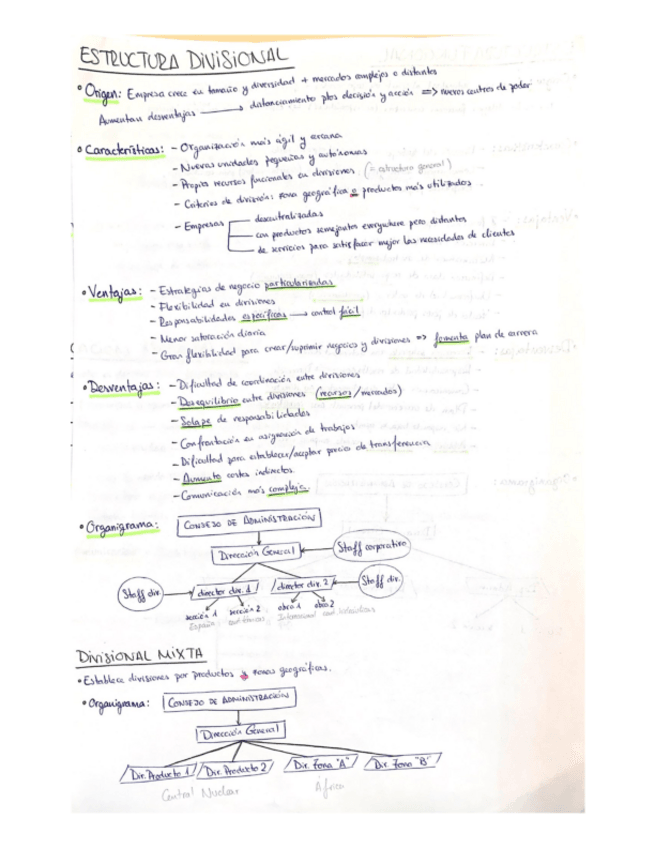 ESTRUCTURA DIVISIONAL
• Origen: Empresa crece en tamaño y diversidad + mercados complejos o distantes
Aumentan desventajas → distanciamiento ptos decisión y acción => nuevos centros de poder
• Características: - Organización más ágil y cercana
- Nuevas unidades pequeñas y autónomas
- Propios recursos funcionales en divisiones (= estructura general)
- Criterios de división: zona geográfica o productos más utilizados
- Empresas descentralizadas
con productos semejantes everywhere pero distantes
de servicios para satisfacer mejor las necesidades de clientes
• Ventajas: - Estrategias de negocio particularizadas
- Flexibilidad en divisiones
- Responsabilidades específicas → control fácil
- Menor saturación diaria
- Gran flexibilidad para crear/suprimir negocios y divisiones => fomenta plan de carrera
• Desventajas: - Dificultad de coordinación entre divisiones
- Desequilibrio entre divisiones (recursos/mercados)
- Solape de responsabilidades
- Confrontación en asignación de trabajos
- Dificultad para establecer/aceptar precio de transferencia
- Aumento costes indirectos.
- Comunicación más compleja.
• Organigrama: CONSEJO DE ADMINISTRACIÓN
Dirección General Staff corporativo
Staff div. director div. 1 director div. 2 Staff div.
sección 1 sección 2 obra 1 obra 2
España Internacional
DIVISIONAL MIXTA
• Establece divisiones por productos y zonas geográficas.
• Organigrama: CONSEJO DE ADMINISTRACIÓN
Dirección General
Dir. Producto 1 Dir. Producto 2 Dir. Zona "A" Dir. Zona "B"
Central Nuclear África